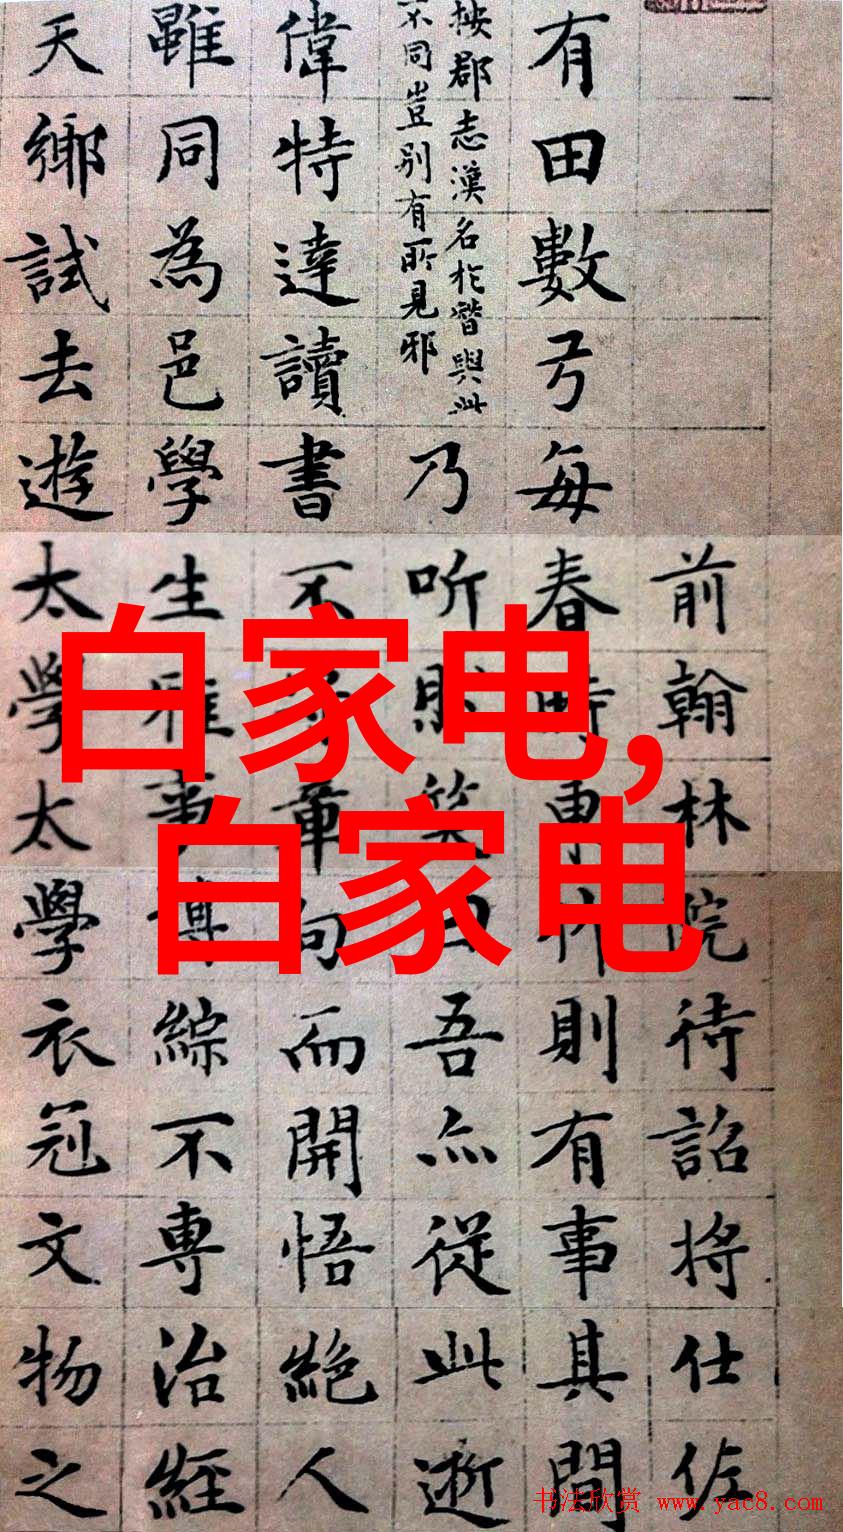 白家电,
白家电
前翰林院待詔將仕佐
有田數弓每春時東作則有事其間
按郡志漢名於潛與此
不同豈别有所見邪
乃听則笑曰吾亦從此逝
偉特達讀書不為章句而開悟絶人
雖同為邑學生雅事博綜不專治經
天鄉試去遊太學太學衣冠文物之
书法欣赏 www.yac8.com